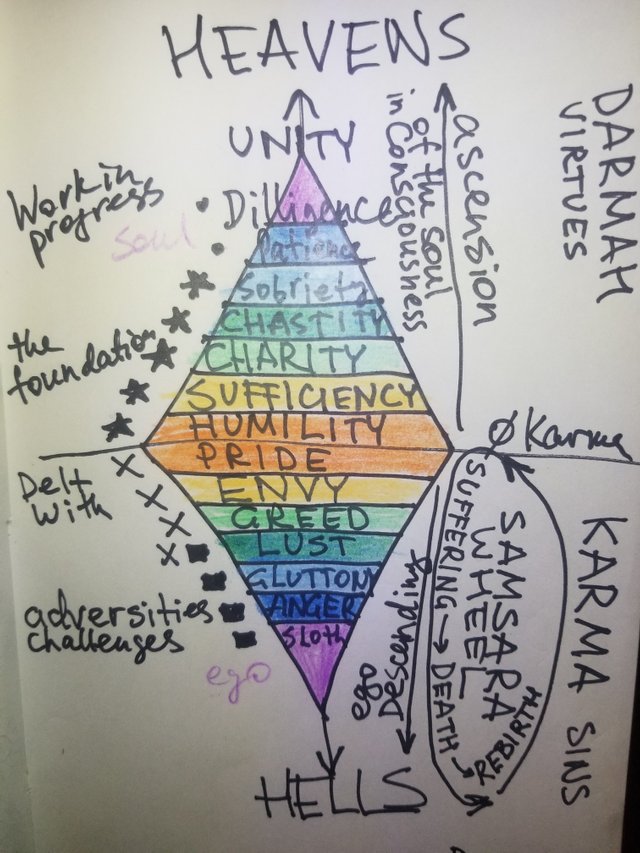 HEAVENS
UNITY
Work in
progress
Soul
Dilligence
Patience
Sobriety
CHASTITY
CHARITY
SUFFICIENCY
HUMILITY
the
foundation
ascension
of the soul
in Consciousness
DARMAH
VIRTUES
Ø Karma
PRIDE
ENVY
GREED
LUST
GLUTTONY
ANGER
Sloth
Delt
with
adversities
challenges
ego
ego
Descending
SUFFERING → DEATH → REBIRTH
SAMSARA
WHEEL
KARMA SINS
HELLS